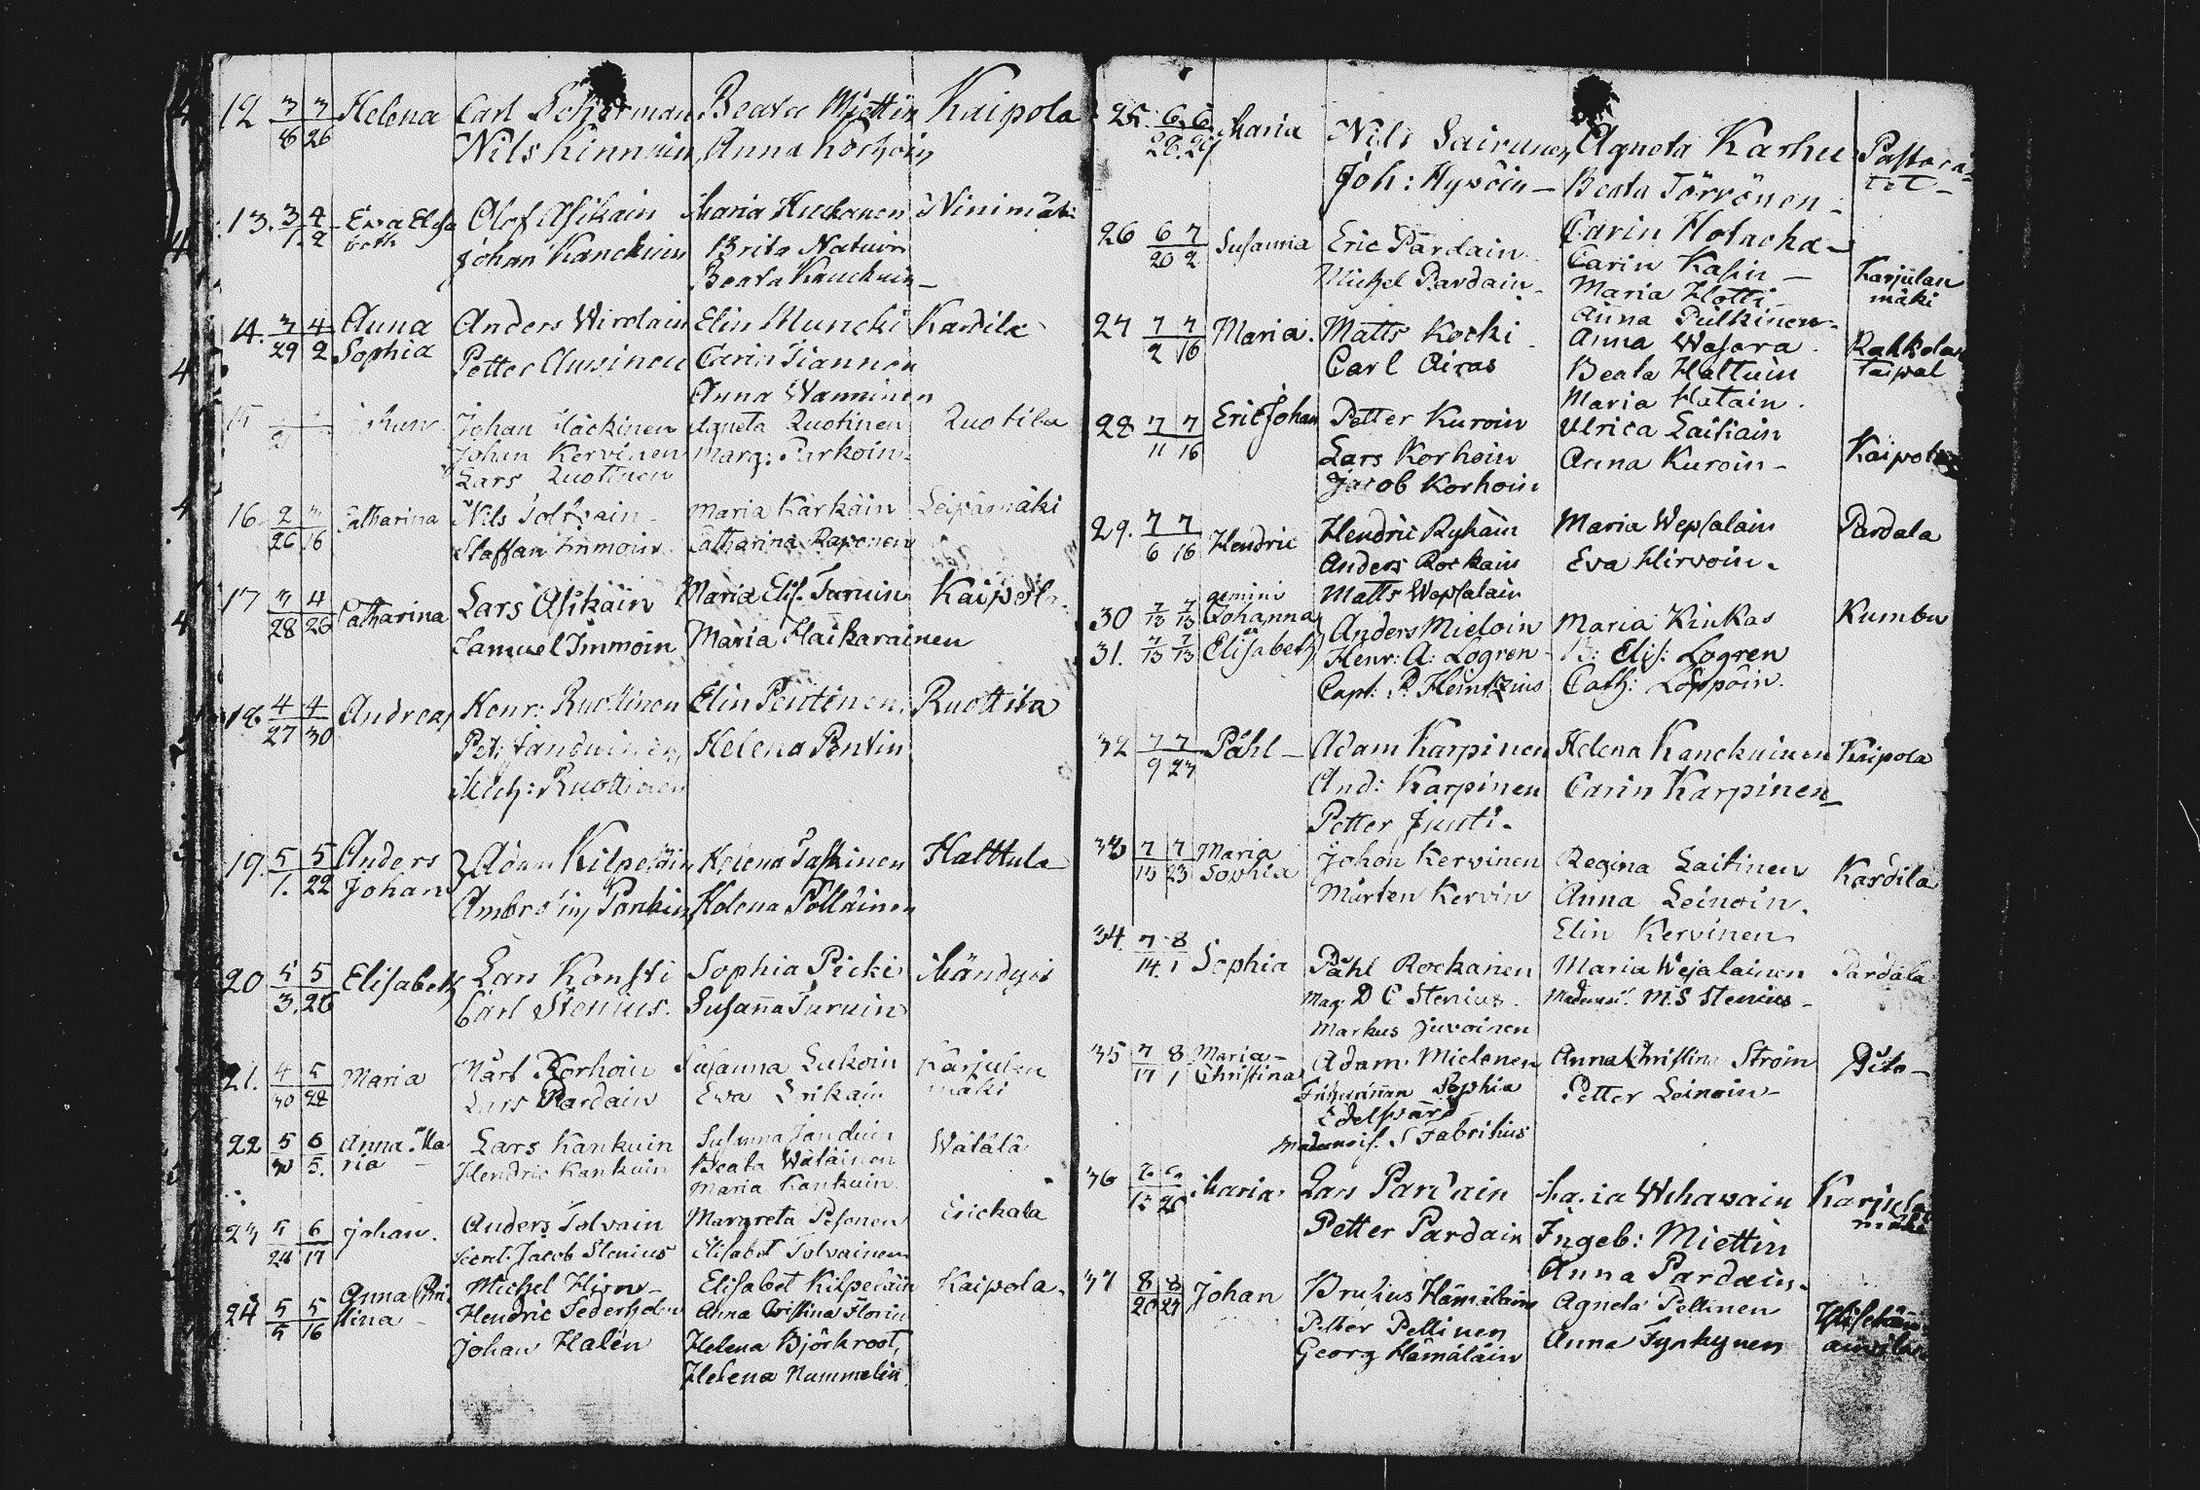 12 3/8 3/26 Helena Carl Beata Miettin Kaipola
Nils Kinnuin Anna
13. 3/1 4/2 Eva Elisa Olof Asikain Maria Kuckanen Ninimäki
beth Johan Kanckuin Brita Natuin
Beata Kanckuin
14. 3/29 4/2 Anna Anders Wirolain Elin Muncki Kardila
Sophia Petter Auvinen Carin Tiannen
Anna Wanninen
15 Johan Johan Häckinen Agneta Ruotinen Ruotila
Johan Kervinen Marg: Parkoin
Lars Ruotinen
16. 2/26 3/16 Catharina Nils Tolvain Maria Kärkäin Leipämäki
Staffan Immoin Catharina Raponen
17 3/28 4/26 Catharina Lars Asikain Maria Elis. Turuin Kaipola
Samuel Immoin Maria Haikarainen
18. 4/27 4/30 Andreas Henr: Ruottinen Elin Pentinen Ruottila
Pet: Janduinen Helena Pentin
Mich: Ruottinen
19. 5/1. 5/22 Anders Adam Kilpeläin Helena Taskinen Halttula
Johan Ambrosius Parkin Helena Pölläinen
20 5/3. 5/26 Elisabeth Lars Konsti Sophia Picki Mändyis
Carl Stenius. Susanna Turuin
21. 4/30 5/28 Maria Mårt Korhoin Susanna Lukoin Karjulan
Lars Pardain Ewa mäki
22 5/30 6/5. Anna Ma Lars Kankuin Susanna Janduin Wätälä
ria Hendric Kankuin Beata Wäläinen
Maria Kankuin
23 5/24 6/17 Johan. Anders Tolvain Margreta Pesonen Erickala
Jacob Stenius Elisabet Tolvainen
24 5/5 5/16 Anna Chri Michel Hirn Elisabet Kilpeläin Kaipola
stina Hendric Federholm Anna Cristina Florin
Johan Halén Helena Björkroot,
Helena Nummelin
25. 6/26. 6/29 Maria Nils Sairanen Agneta Karhu Pastora-
Joh: Hyvöin Beata Törrönen tet
26 6/20 7/2 Susanna Eric Pardain Carin Hotacka
Michel Pardain Carin Kasin Karjulan
Maria Hotti mäki
Anna Pulkinen
27 7/2 7/16 Maria. Matts Kocki Anna Wasara Rahkolan
Carl Airas Beata Hattuin taipal
Maria Hatain
28 7/11 7/16 Eric Johan Petter Kuroin Ulrica Laitiain Kaipola
Lars Korhoin Anna Kuroin
Jacob Korhoin
29. 7/6 7/16 Hendric Hendric Rykäin Maria Wepsalain Pardala
Anders Rockain Eva Hirvoin.
Matts Wepsalain
gemini
30 7/13 7/13 Johanna Anders Mieloin Maria Kinkas Kumbu
31. 7/13 7/13 Elisabeth Henr: A: Logren B: Elis: Logren
Capt: P. Heintzius Cath: Loppoin.
32 7/9 7/23 Påhl Adam Karpinen Helena Kanckuinen Kaipola
And: Karpinen Carin Karpinen
Petter Juuti.
33 7/13 7/23 Maria Johan Kervinen Regina Laitinen Kardila
Sophia Mårten Kervin Anna Leinoin.
Elin Kervinen
34. 7/14. 8/1 Sophia Påhl Rockainen Maria Wejalainen Pardala
Mag. D C Stenius. M. S Stenius
Markus Juvoinen
35 7/17 8/1 Maria Adam Mielonen Anna Christina Ström Pito
Christina Sophia Petter Leinoin
Edelsvärd
Madamois. S Fabritius
36 Maria. Lars Pardain Maria Wihavain Karjulan
Petter Pardain Ingeb: Miettin mäki
Anna Pardain.
37 8/20 8/29 Johan Brusius Hämäläin Agneta Peltinen
Petter Peltinen Anna Tynkynen
Georg Hämäläin